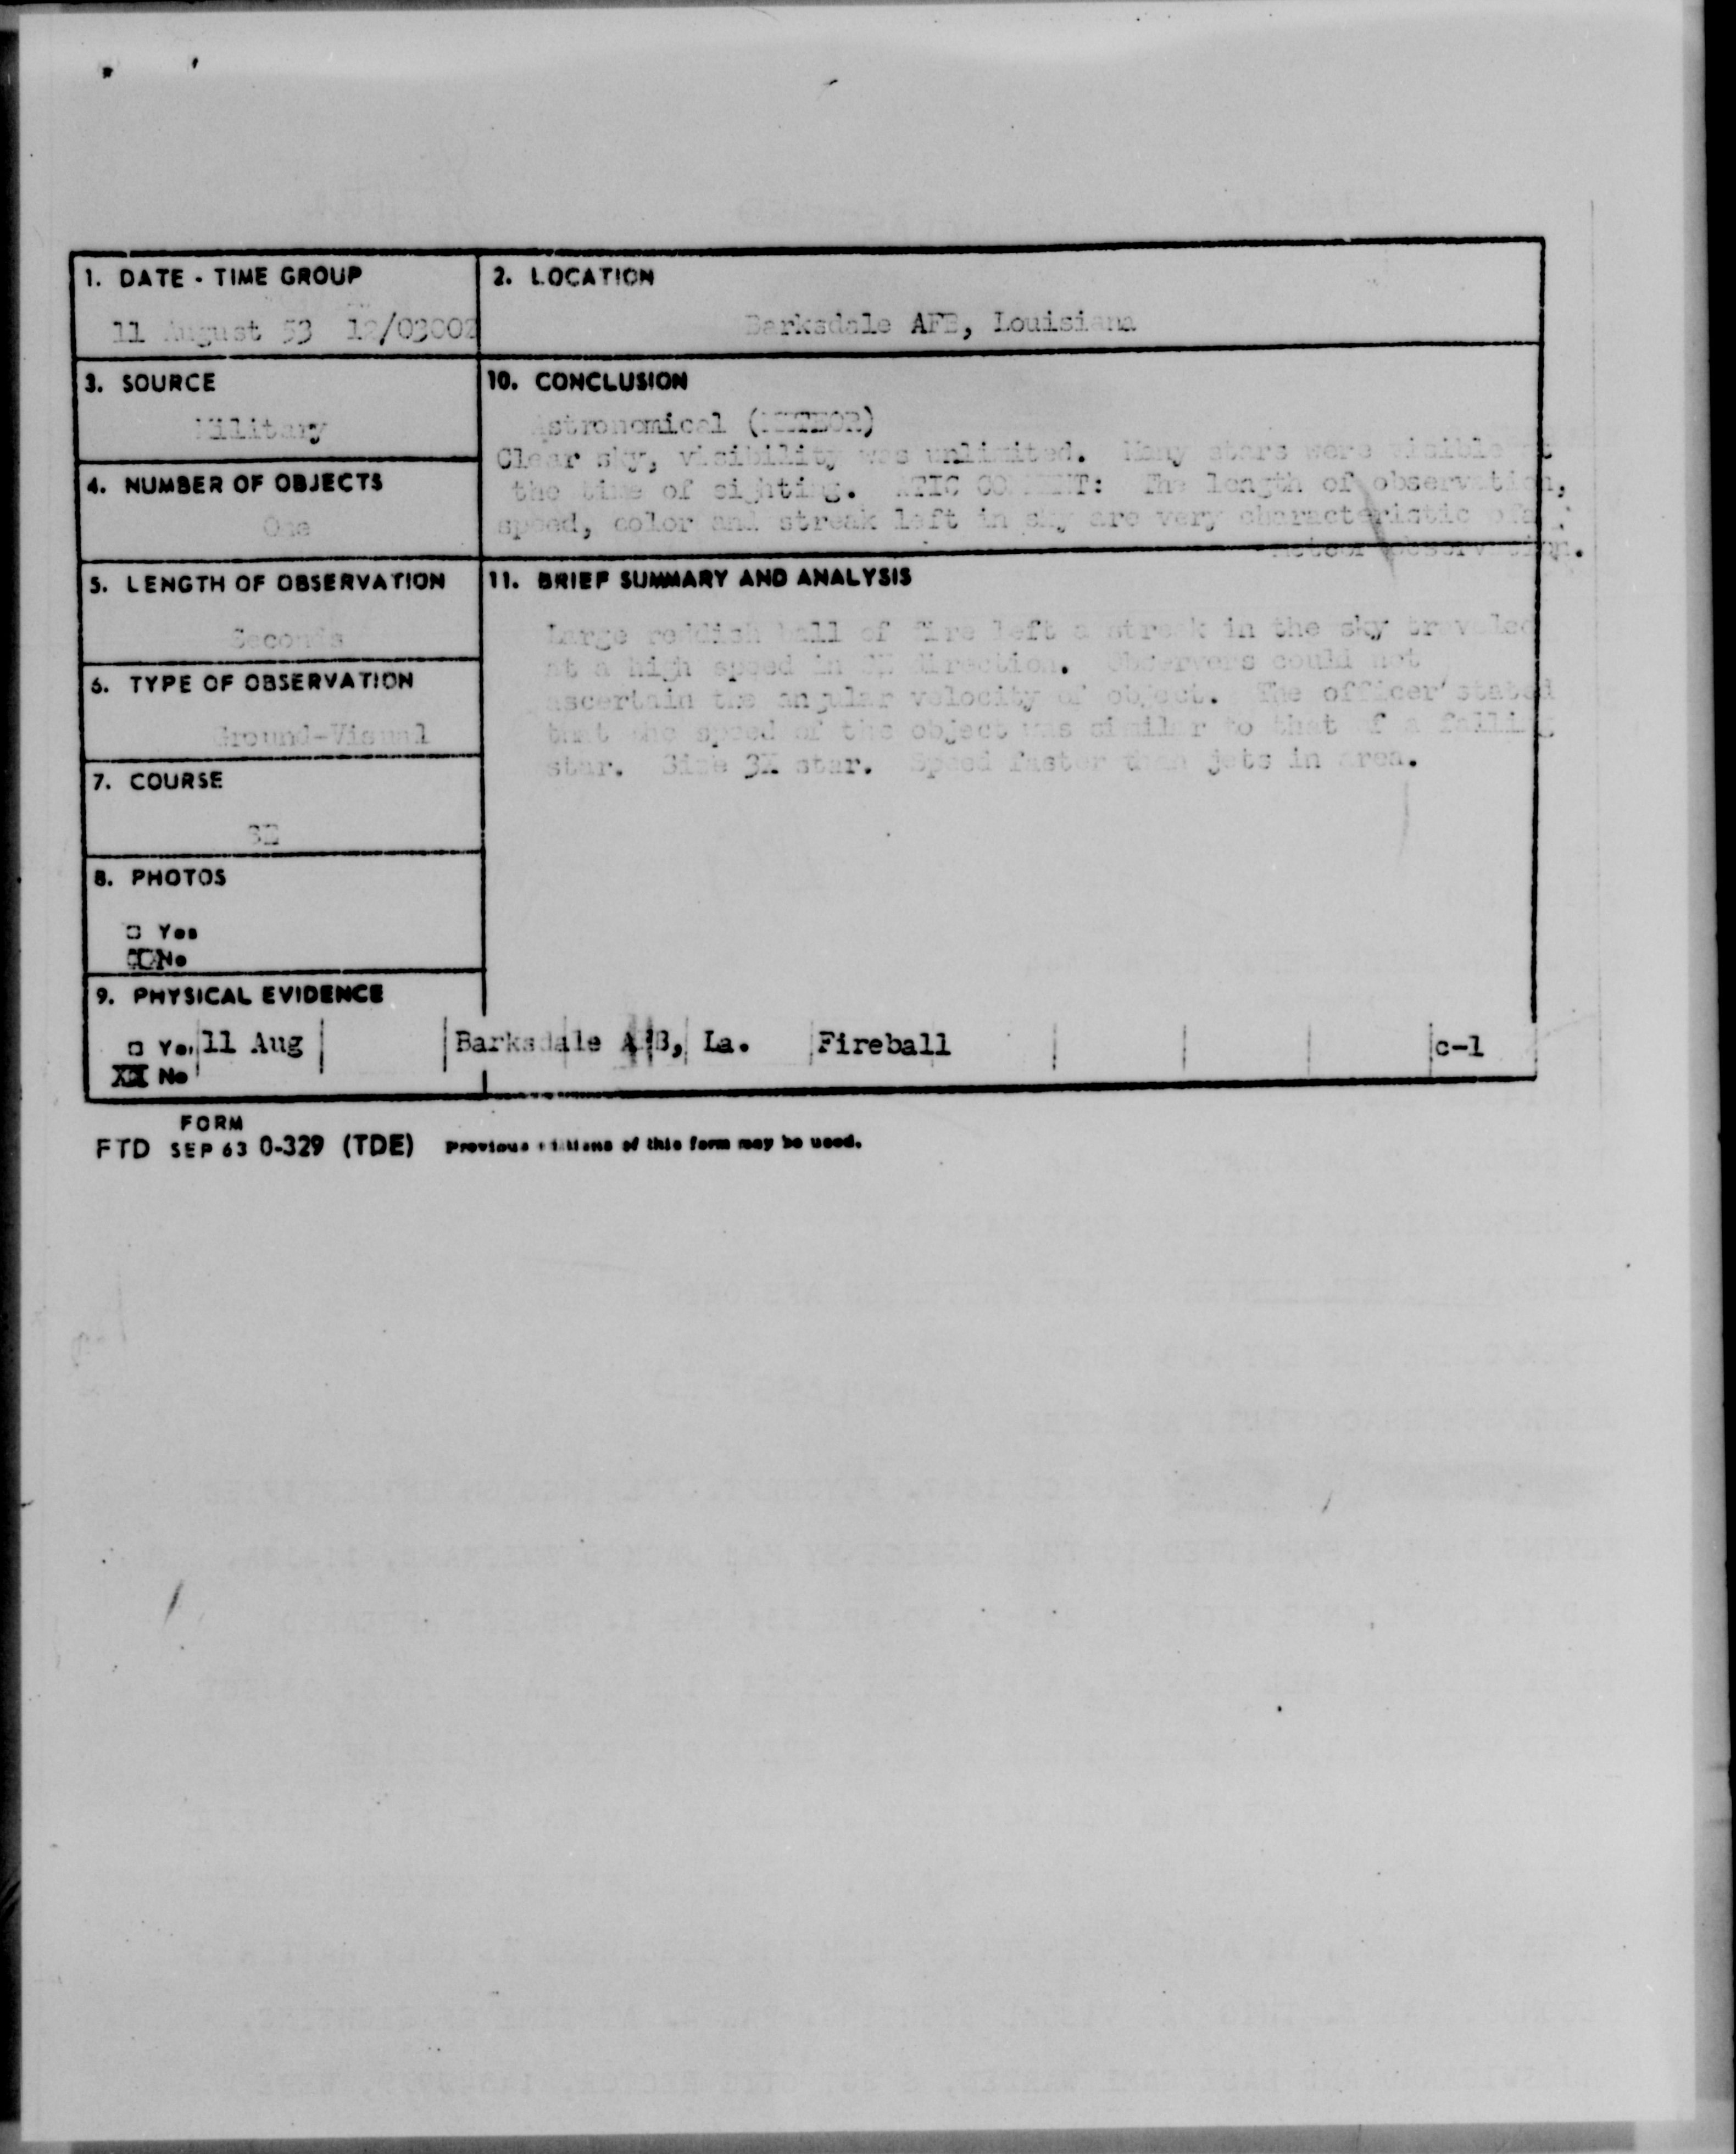 1. DATE - TIME GROUP
11 August 53 12/0300Z
2. LOCATION
Barksdale AFB, Louisiana
3. SOURCE
Military
10. CONCLUSION
Astronomical (METEOR)
Clear sky, visibility was unlimited. Many stars were visible at
the time of sighting. ATIC COMMENT: The length of observation,
speed, color and streak left in sky are very characteristic of a
meteor observation.
4. NUMBER OF OBJECTS
One
5. LENGTH OF OBSERVATION
Seconds
11. BRIEF SUMMARY AND ANALYSIS
Large reddish ball of fire left a streak in the sky traveled
at a high speed in direction. Observers could not
ascertain the angular velocity of object. The officer stated
that the speed of the object was similar to that of a falling
star. Size 3X star. Speed faster than jets in area.
6. TYPE OF OBSERVATION
Ground-Visual
7. COURSE
8. PHOTOS
□ Yes
No
9. PHYSICAL EVIDENCE
□ Yes 11 Aug Barksdale AFB, La. Fireball c-1
XX No
FORM
FTD SEP 63 0-329 (TDE) Previous editions of this form may be used.